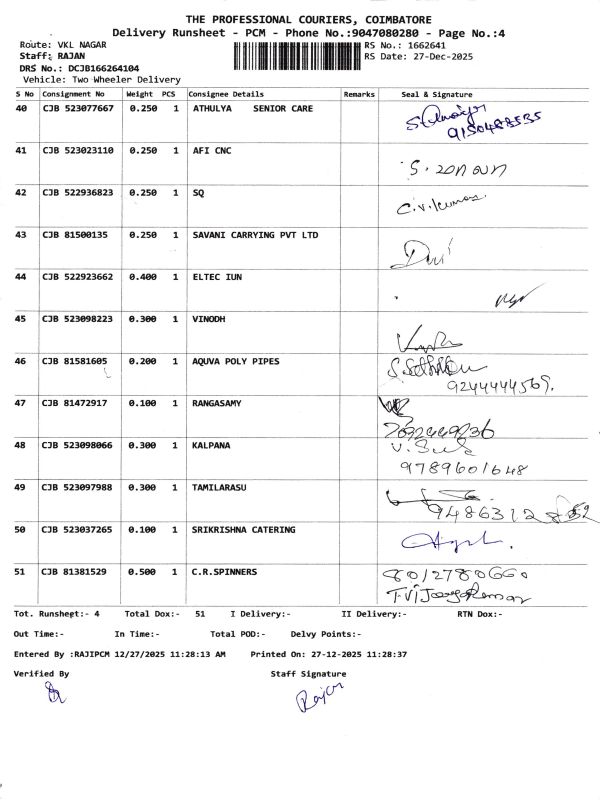 THE PROFESSIONAL COURIERS, COIMBATORE
Delivery Runsheet - PCM - Phone No.:9047080280 - Page No.:4
Route: VKL NAGAR RS No.: 1662641
Staff: RAJAN RS Date: 27-Dec-2025
DRS No.: DCJB166264104
Vehicle: Two Wheeler Delivery
S No Consignment No Weight PCS Consignee Details Remarks Seal & Signature
40 CJB 523077667 0.250 1 ATHULYA SENIOR CARE
9150483535
41 CJB 523023110 0.250 1 AFI CNC
42 CJB 522936823 0.250 1 SQ C.V.Kumar
43 CJB 81500135 0.250 1 SAVANI CARRYING PVT LTD
44 CJB 522923662 0.400 1 ELTEC IUN
45 CJB 523098223 0.300 1 VINODH
46 CJB 81581605 0.200 1 AQUVA POLY PIPES
9244444569.
47 CJB 81472917 0.100 1 RANGASAMY
48 CJB 523098066 0.300 1 KALPANA
9789601648
49 CJB 523097988 0.300 1 TAMILARASU
50 CJB 523037265 0.100 1 SRIKRISHNA CATERING
51 CJB 81381529 0.500 1 C.R.SPINNERS 8012780660
T.Vijayakumar
Tot. Runsheet:- 4 Total Dox:- 51 I Delivery:- II Delivery:- RTN Dox:-
Out Time:- In Time:- Total POD:- Delvy Points:-
Entered By :RAJIPCM 12/27/2025 11:28:13 AM Printed On: 27-12-2025 11:28:37
Verified By Staff Signature
Rajan